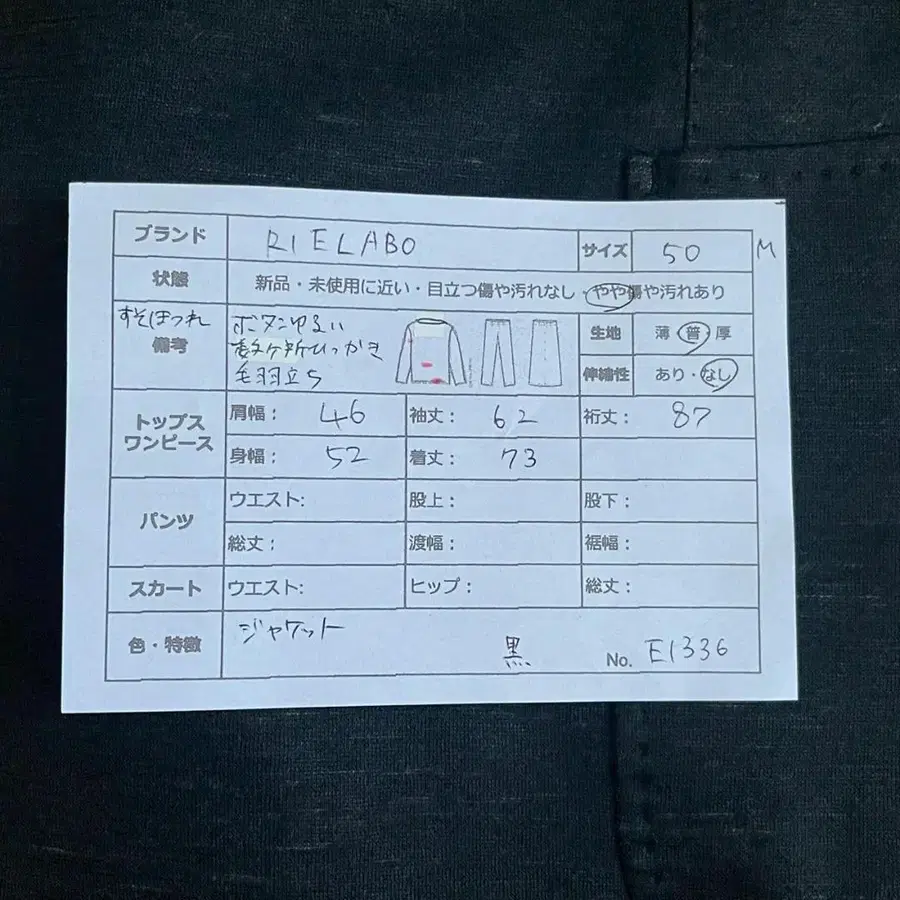 ブランド RIELABO サイズ 50 M
状態 新品・未使用に近い・目立つ傷や汚れなし・やや傷や汚れあり
すそほつれ
備考
ボタンゆるい
数ヶ所ひっかき
毛羽立ち
生地 薄 普 厚
伸縮性 あり・なし
トップス
ワンピース
肩幅: 46 袖丈: 62 裄丈: 87
身幅: 52 着丈: 73
パンツ
ウエスト: 股上: 股下:
総丈: 渡幅: 裾幅:
スカート ウエスト: ヒップ: 総丈:
色・特徴
ジャケット
黒
No. E1336